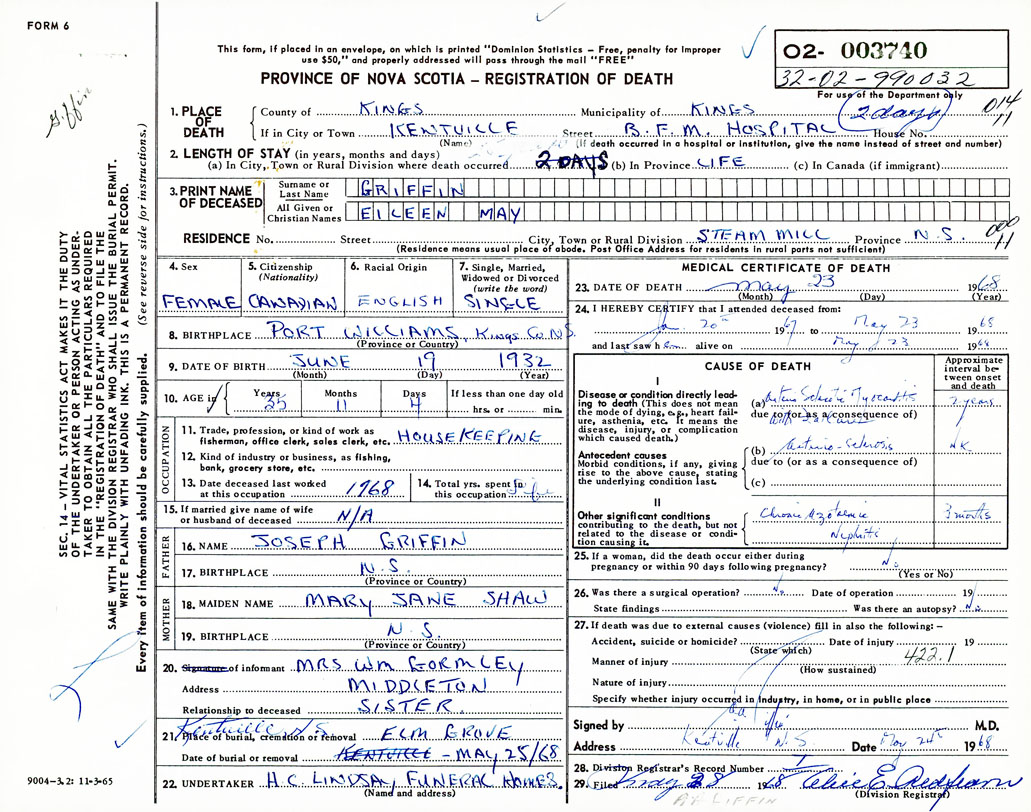 FORM 6
This form, if placed in an envelope, on which is printed "Dominion Statistics – Free, penalty for improper
use $50," and properly addressed will pass through the mail "FREE"
PROVINCE OF NOVA SCOTIA – REGISTRATION OF DEATH
02- 003740
32-02-990032
For use of the Department only
Griffin
1. PLACE OF DEATH
County of KINGS Municipality of KINGS
2 days
014
11
If in City or Town KENTVILLE Street B.F.M. HOSPITAL House No.
(Name) (If death occurred in a hospital or institution, give the name instead of street and number)
2. LENGTH OF STAY (in years, months and days)
(a) In City, Town or Rural Division where death occurred 2 DAYS (b) In Province LIFE (c) In Canada (if immigrant)
3. PRINT NAME OF DECEASED
Surname or Last Name GRIFFIN
All Given or Christian Names EILEEN MAY
000
11
RESIDENCE No. Street City, Town or Rural Division STEAM MILL Province N.S.
(Residence means usual place of abode. Post Office Address for residents in rural parts not sufficient)
4. Sex
FEMALE
5. Citizenship
(Nationality)
CANADIAN
6. Racial Origin
ENGLISH
7. Single, Married,
Widowed or Divorced
(write the word)
SINGLE
8. BIRTHPLACE PORT WILLIAMS, Kings Co. N.S.
(Province or Country)
9. DATE OF BIRTH JUNE 19 1932
(Month) (Day) (Year)
10. AGE in
Years Months Days If less than one day old
35 11 4 hrs. or min.
OCCUPATION
11. Trade, profession, or kind of work as
fisherman, office clerk, sales clerk, etc. HOUSEKEEPING
12. Kind of industry or business, as fishing,
bank, grocery store, etc.
13. Date deceased last worked
at this occupation 1968
14. Total yrs. spent in
this occupation life
15. If married give name of wife
or husband of deceased N/A
FATHER
16. NAME JOSEPH GRIFFIN
17. BIRTHPLACE N.S.
(Province or Country)
MOTHER
18. MAIDEN NAME MARY JANE SHAW
19. BIRTHPLACE N.S.
(Province or Country)
20. Signature of informant MRS WM GORMLEY
Address MIDDLETON
Relationship to deceased SISTER
Kentville N.S.
21. Place of burial, cremation or removal ELM GROVE
Date of burial or removal KENTVILLE – MAY 25/68
22. UNDERTAKER H.C. LINDSAY FUNERAL HOMES
(Name and address)
MEDICAL CERTIFICATE OF DEATH
23. DATE OF DEATH May 23 1968
(Month) (Day) (Year)
24. I HEREBY CERTIFY that I attended deceased from:
Jan. 20th 1967 to May 23 1968
and last saw her alive on May 23 1968
CAUSE OF DEATH
Approximate
interval be-
tween onset
and death
I
Disease or condition directly lead-
ing to death (This does not mean
the mode of dying, e.g., heart fail-
ure, asthenia, etc. It means the
disease, injury, or complication
which caused death.)
(a) Arterio Sclerotic Myocarditis 2 years
due to (or as a consequence of)
Antecedent causes
Morbid conditions, if any, giving
rise to the above cause, stating
the underlying condition last.
(b) Arterio-sclerosis NK
due to (or as a consequence of)
(c)
II
Other significant conditions
contributing to the death, but not
related to the disease or condi-
tion causing it.
Chronic Azotemic 3 months
Nephritis
25. If a woman, did the death occur either during
pregnancy or within 90 days following pregnancy? No
(Yes or No)
26. Was there a surgical operation? No Date of operation 19
State findings Was there an autopsy? No
27. If death was due to external causes (violence) fill in also the following: –
Accident, suicide or homicide? Date of injury 19
(State which)
422.1
Manner of injury
(How sustained)
Nature of injury
Specify whether injury occurred in industry, in home, or in public place
Signed by M.D.
Address Kentville N.S. Date May 24th 1968
28. Division Registrar's Record Number
29. Filed May 28 1968 Alice E.
(Division Registrar)
SEC. 14 – VITAL STATISTICS ACT MAKES IT THE DUTY
OF THE UNDERTAKER OR PERSON ACTING AS UNDER-
TAKER TO OBTAIN ALL THE PARTICULARS REQUIRED
IN THE "REGISTRATION OF DEATH" AND TO FILE THE
SAME WITH THE DIVISION REGISTRAR WHO SHALL ISSUE THE BURIAL PERMIT.
WRITE PLAINLY WITH UNFADING INK. THIS IS A PERMANENT RECORD.
Every item of information should be carefully supplied. (See reverse side for instructions.)
9004–3.2: 11-3-65